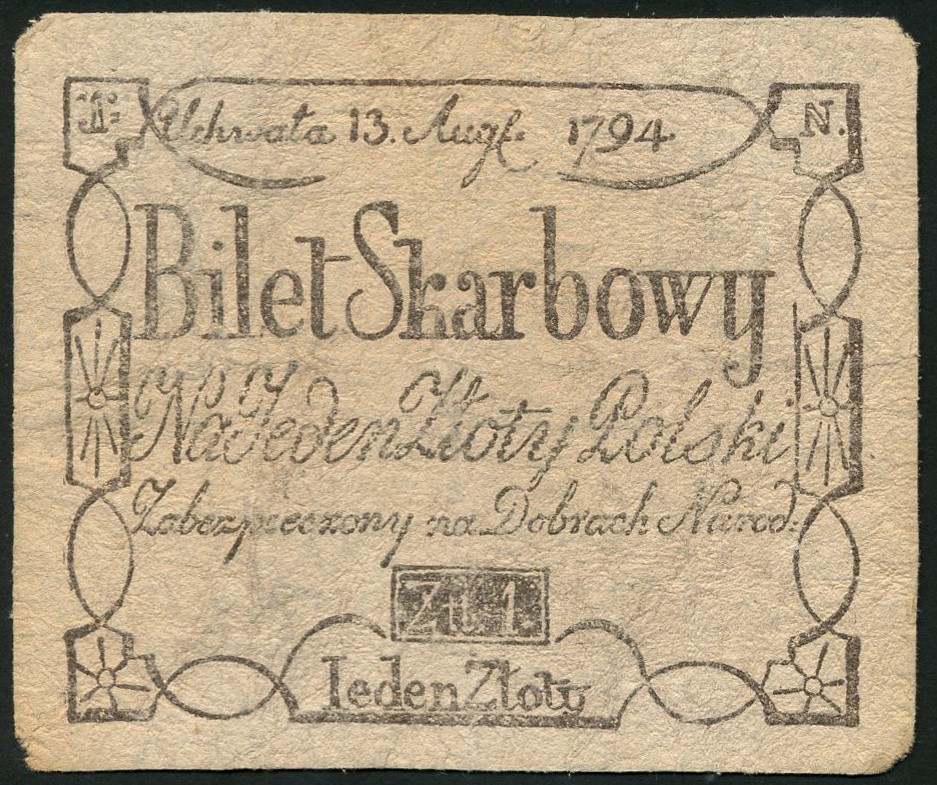 1º N.
Uchwała 13. Augſt. 1794
Bilet Skarbowy
Na Jeden Złoty Polski
Zabezpieczony na Dobrach Narod:
Zł. 1.
Ieden Złoty